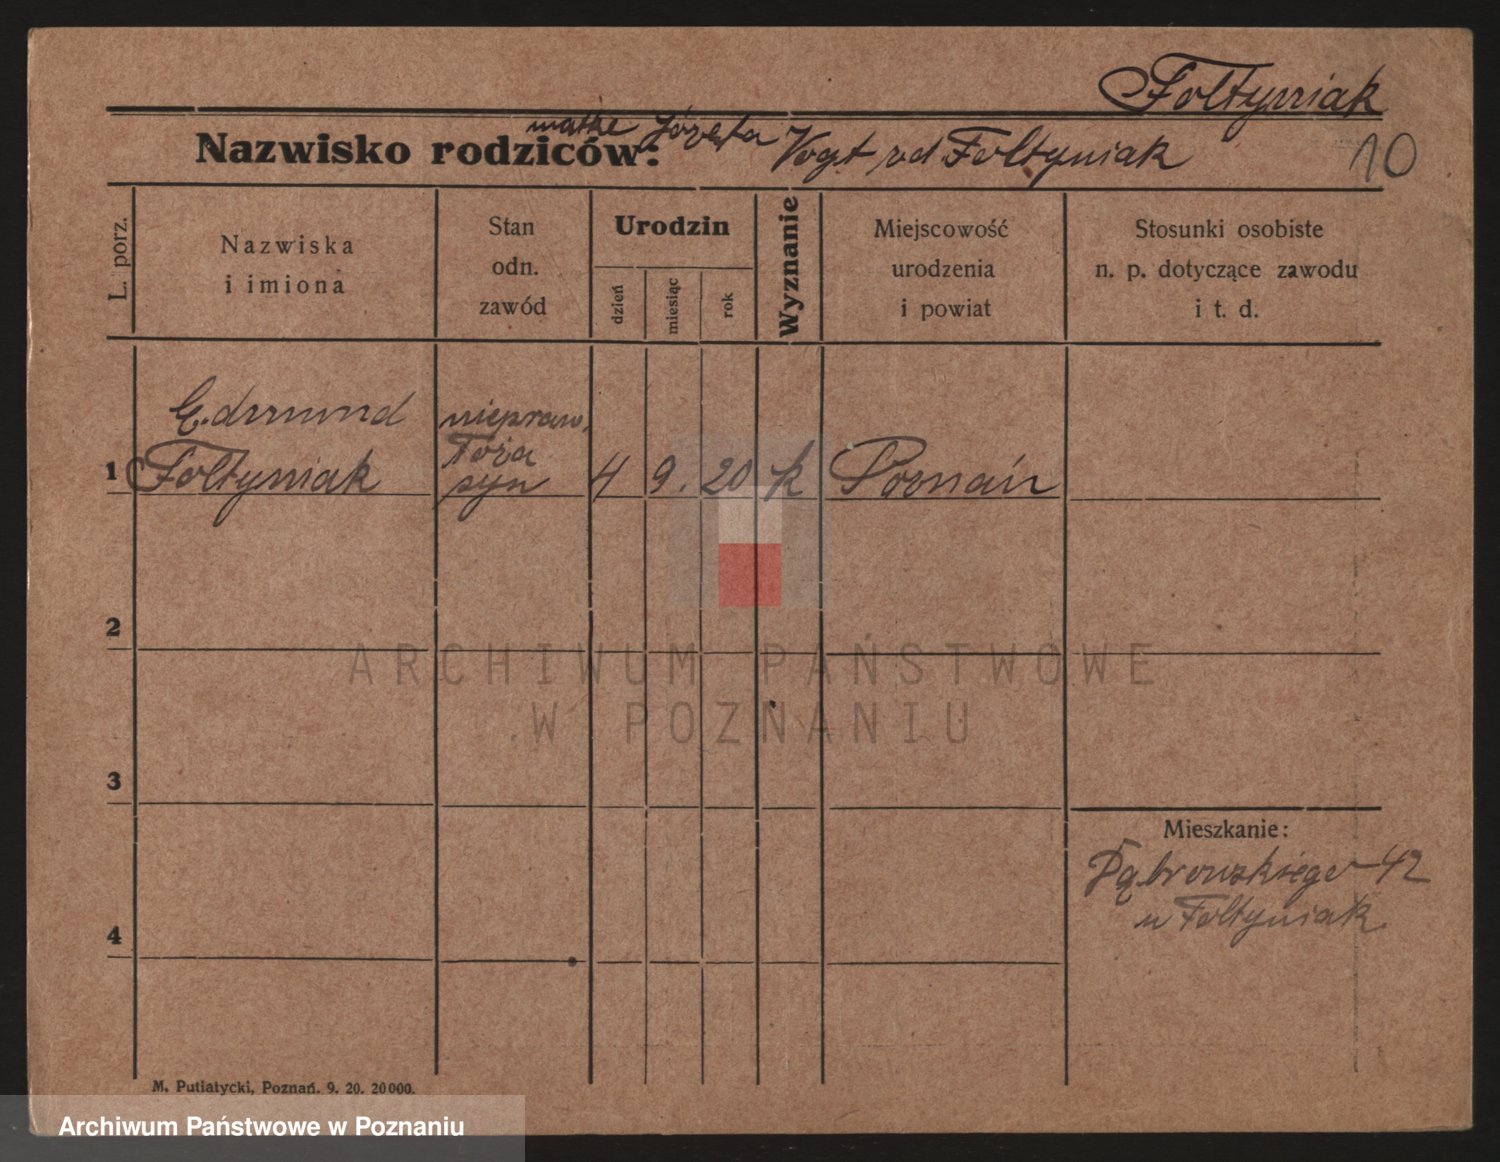 Fołtyniak
matka Józefa Vogt zd Fołtyniak
Nazwisko rodziców:
10
L. porz.
Nazwiska
i imiona
Stan
odn.
zawód
Urodzin
dzień
miesiąc
rok
Wyznanie
Miejscowość
urodzenia
i powiat
Stosunki osobiste
n. p. dotyczące zawodu
i t. d.
Edmund
niepraw.
1 Fołtyniak
syn 4 9. 20 k Poznań
2
ARCHIWUM PAŃSTWOWE
W POZNANIU
3
Mieszkanie:
Dąbrowskiego 42
u Fołtyniak
4
M. Putiatycki, Poznań. 9. 20. 20000.
Archiwum Państwowe w Poznaniu